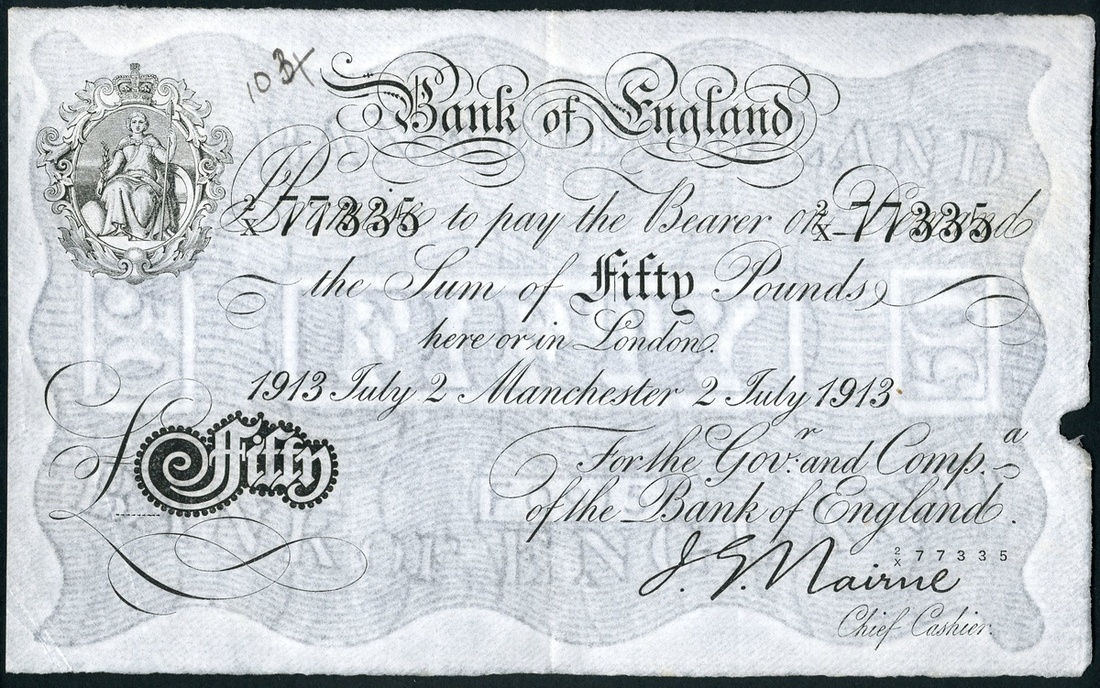 103x
Bank of England
2/X 77335 Promise to pay the Bearer on Demand 2/X 77335
the Sum of Fifty Pounds
here or in London.
1913 July 2 Manchester 2 July 1913
For the Gov.r and Comp.a
of the Bank of England.
£ Fifty
2/X 77335
J. G. Nairne
Chief Cashier.